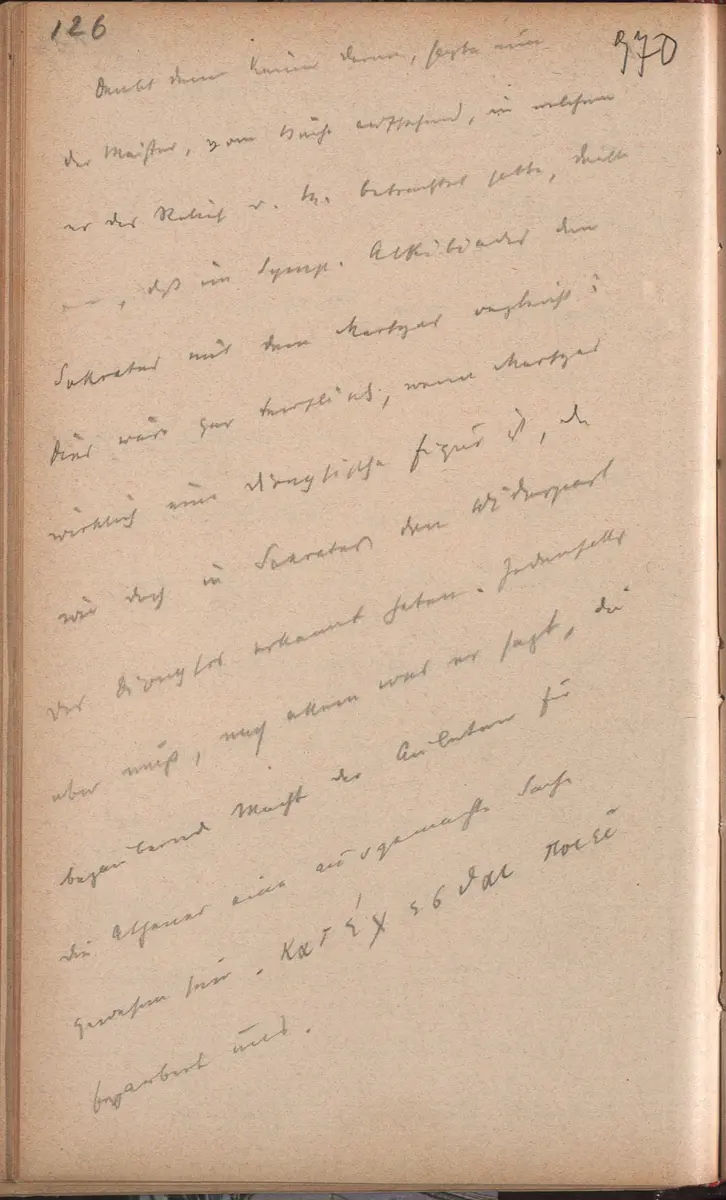 126
970
Denkt denn keiner daran, sagte nun
der Meister, vom Buche aufsehend, in welchem
er das Relief v. M. betrachtet hatte,
, daß im Symp. Alkibiades den
Sokrates mit dem Marsyas vergleicht?
Dies wäre gar trefflich, wenn Marsyas
wirklich eine dionysische Figur ist, da
wir doch in Sokrates den Widerpart
des Dionysos erkannt haben. Jedenfalls
aber muß, nach allem was er sagt, die
bezaubernde Macht der Auleten für
die Athener eine ausgemachte Sache
gewesen sein. Κατέχεσθαι ποιεῖ
bezaubert uns.